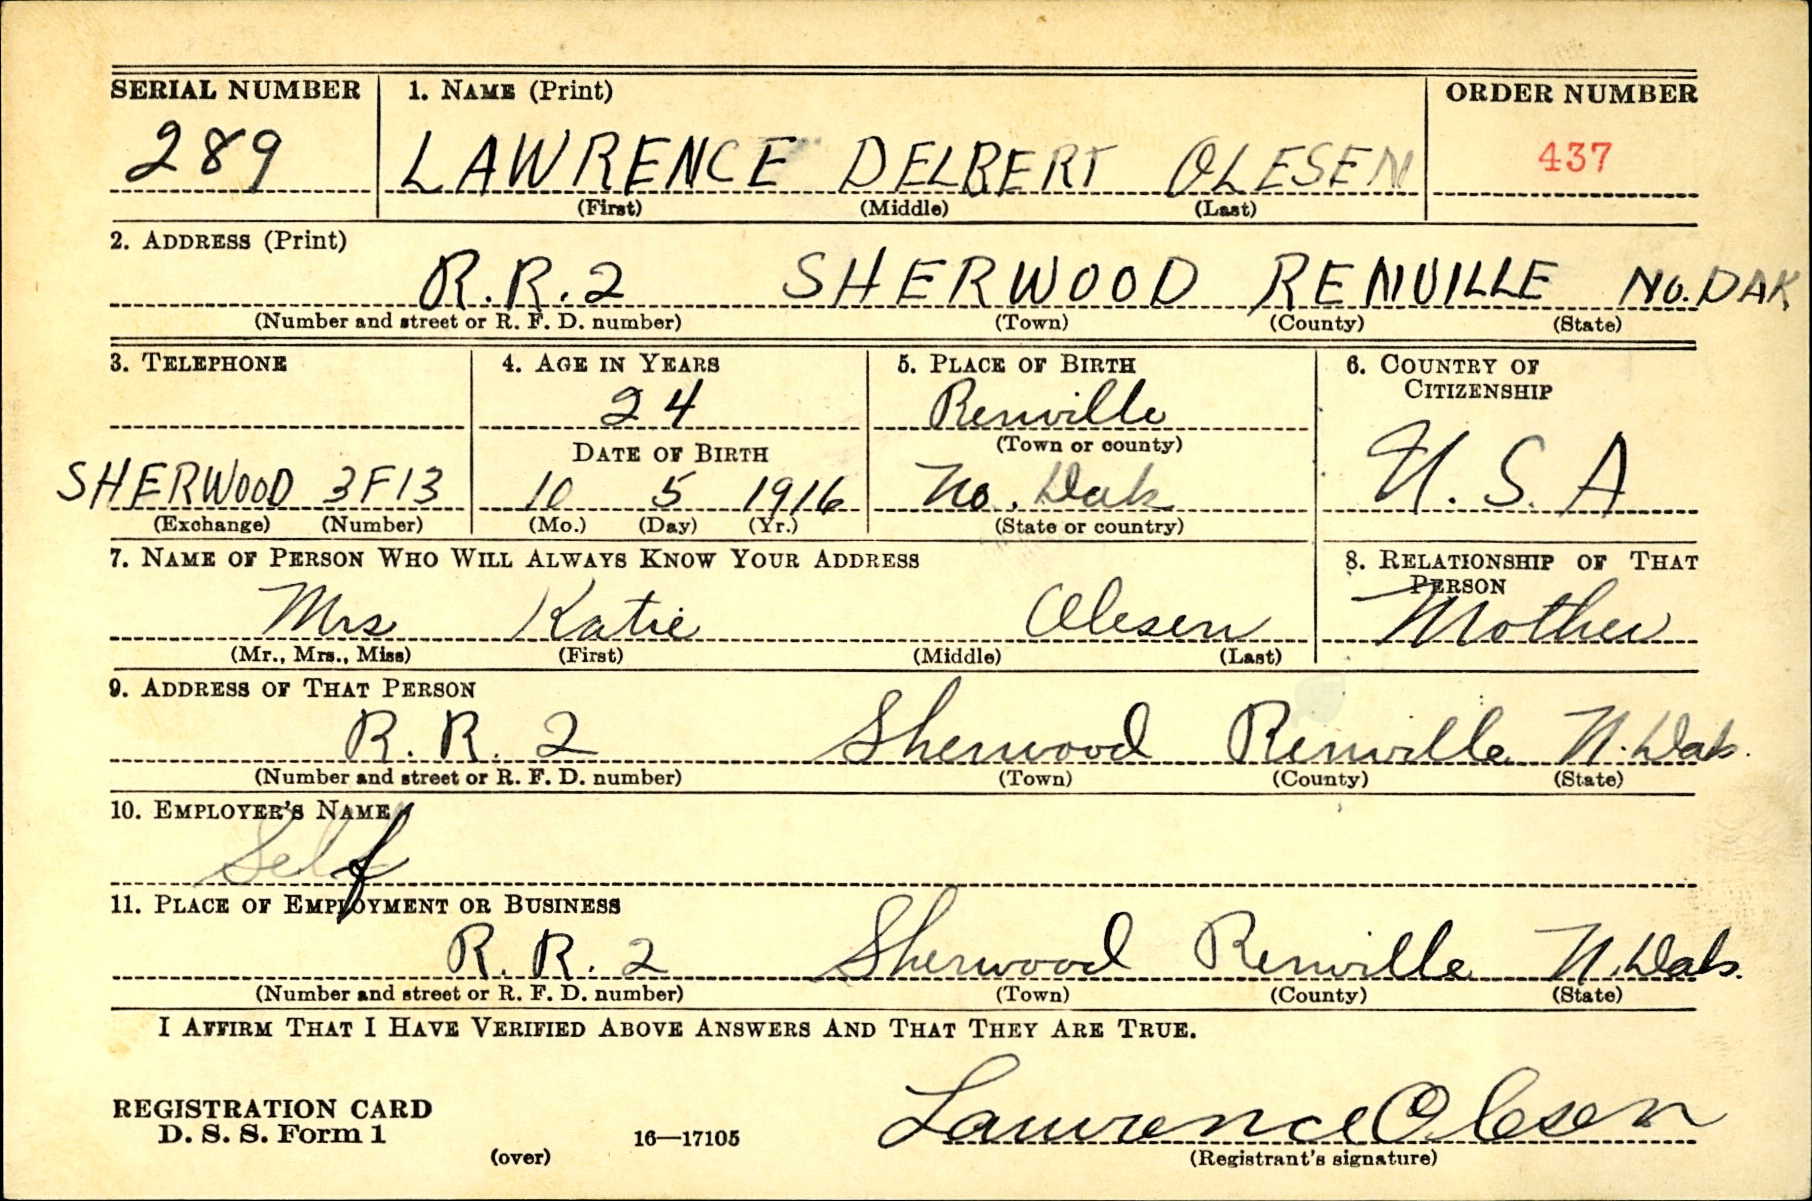 SERIAL NUMBER 1. NAME (Print) ORDER NUMBER
289 LAWRENCE DELBERT OLESEN 437
(First) (Middle) (Last)
2. ADDRESS (Print)
R.R.2 SHERWOOD RENVILLE No.DAK
(Number and street or R. F. D. number) (Town) (County) (State)
3. TELEPHONE 4. AGE IN YEARS 5. PLACE OF BIRTH 6. COUNTRY OF
CITIZENSHIP
24 Renville
DATE OF BIRTH (Town or county)
SHERWOOD 3F13 10 5 1916 No. Dak U.S.A
(Exchange) (Number) (Mo.) (Day) (Yr.) (State or country)
7. NAME OF PERSON WHO WILL ALWAYS KNOW YOUR ADDRESS 8. RELATIONSHIP OF THAT
PERSON
Mrs Katie Olesen Mother
(Mr., Mrs., Miss) (First) (Middle) (Last)
9. ADDRESS OF THAT PERSON
R. R. 2 Sherwood Renville N. Dak.
(Number and street or R. F. D. number) (Town) (County) (State)
10. EMPLOYER'S NAME
Self
11. PLACE OF EMPLOYMENT OR BUSINESS
R. R. 2 Sherwood Renville N. Dak.
(Number and street or R. F. D. number) (Town) (County) (State)
I AFFIRM THAT I HAVE VERIFIED ABOVE ANSWERS AND THAT THEY ARE TRUE.
REGISTRATION CARD
D. S. S. Form 1 16—17105 Lawrence Olesen
(over) (Registrant's signature)